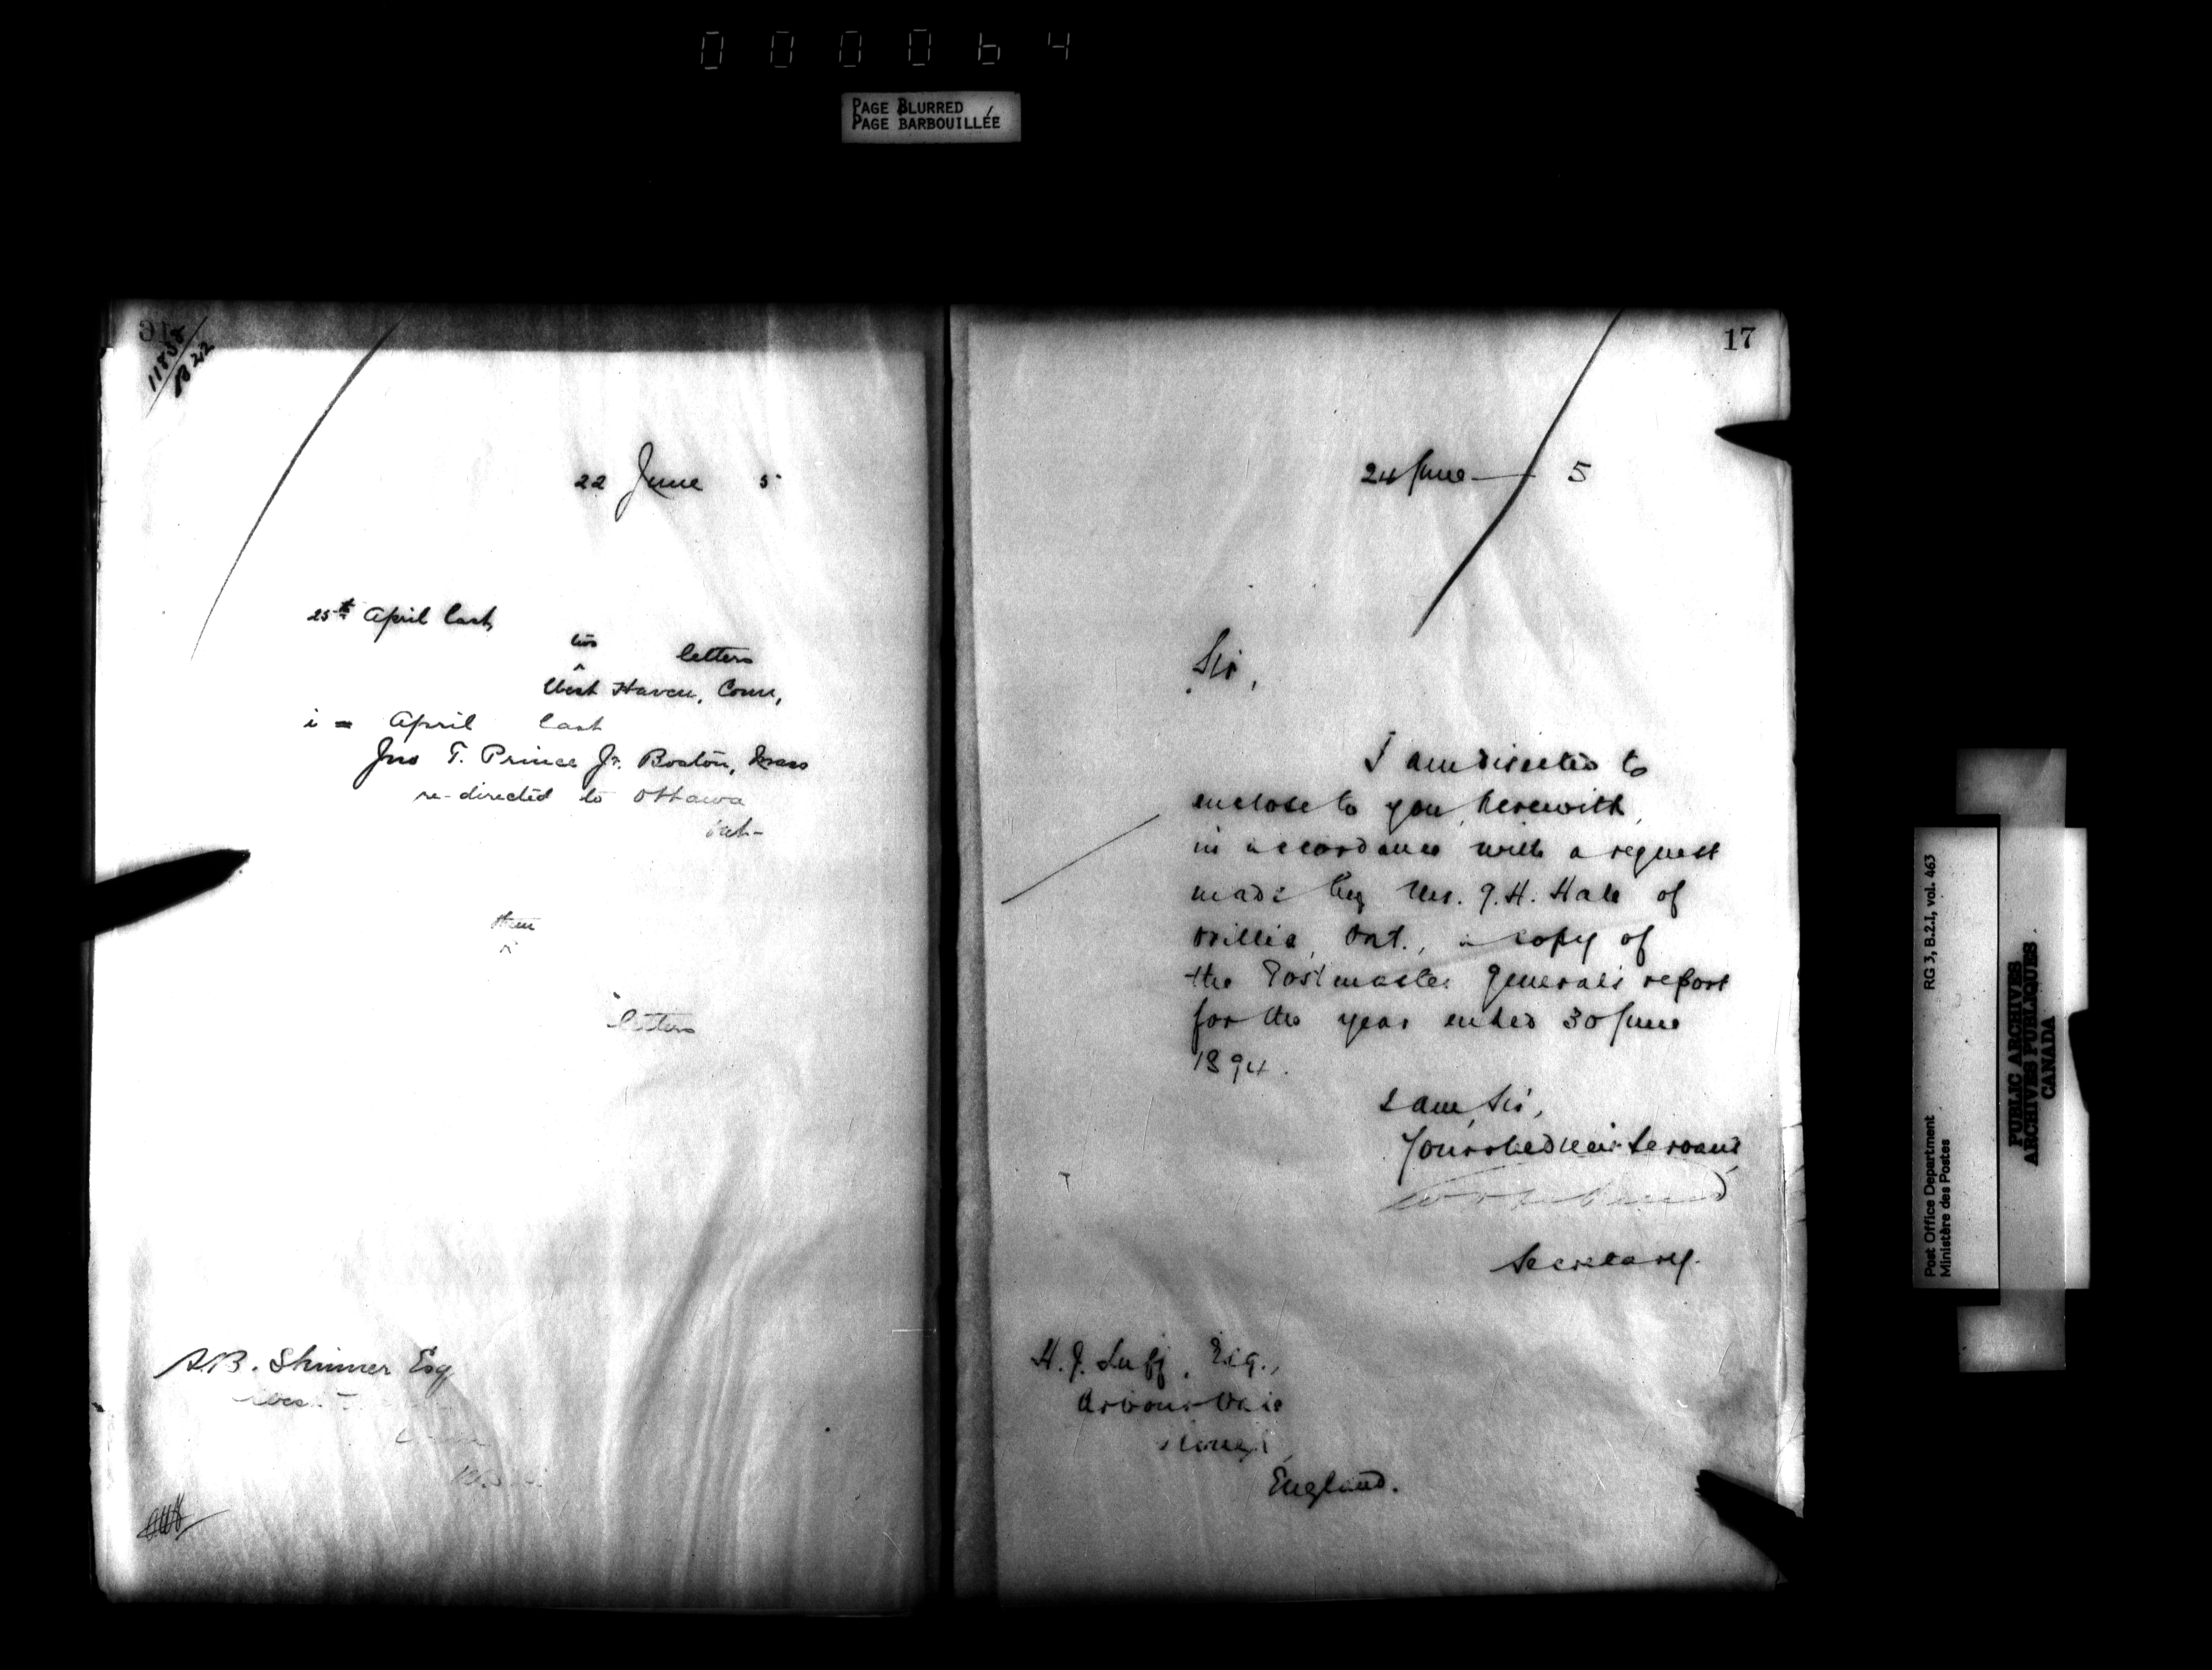 000064
PAGE BLURRED
PAGE BARBOUILLÉE
22 June 5
25th April last,
two
letters
West Haven, Conn,
i = April last
Jno T. Prince Jr. Boston, Mass
re-directed to Ottawa
Ont-
them
letters
A.B. Skinner Esq
West
17
24 June — 5
Sir,
I am directed to
enclose to you, herewith,
in accordance with a request
made by Mr. G. H. Hale of
Orillia, Ont., a copy of
the Postmaster General's report
for the year ended 30 June
1894.
I am, Sir,
Your obedient Servant,
Secretary.
H. J. Esq.,
England.
RG 3, B.2.I, vol. 463
Post Office Department
Ministère des Postes
PUBLIC ARCHIVES
ARCHIVES PUBLIQUES
CANADA